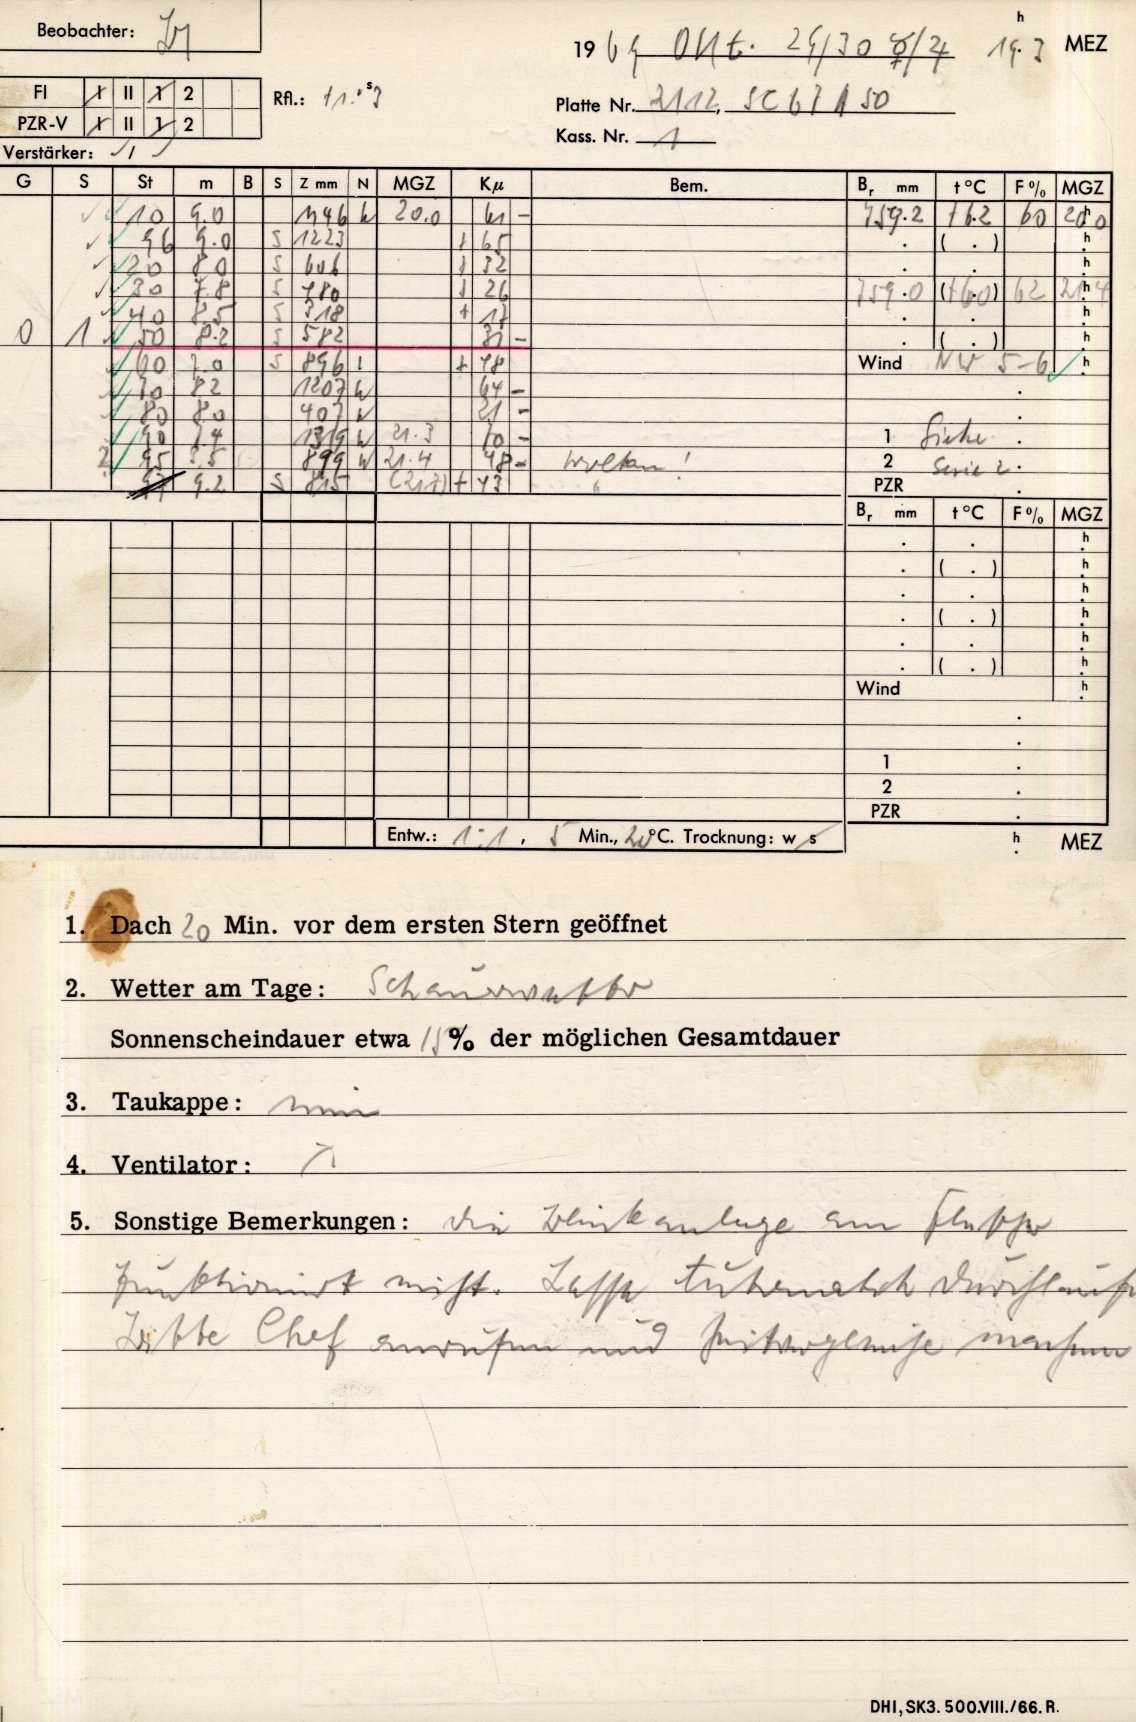 Beobachter:
h
1969 Okt. 29/30 ☿/♃ 19.3 MEZ
FI I II 1 2
Rfl.:
Platte Nr. 2112, SC67A50
PZR-V I II 1 2
Kass. Nr. 1
Verstärker: /
G S St m B S Z mm N MGZ Kμ Bem. Br mm t °C F % MGZ
10 9.0 N 20.0 61 – 759.2 +6.2 60 20.0
96 9.0 S 1223 + 65 . ( . ) h
20 8.0 S 606 + 32 . . h
30 7.8 S 480 + 26 759.0 (+6.0) 62 21.4
40 8.5 S 318 + 17 . . h
0 1 50 8.2 S 582 31 – . ( . ) h
60 7.0 S 896 + 48 Wind NW 5-6 h
70 8.2 1207 N 64 – .
80 8.0 407 N 21 – .
90 7.4 1319 N 21.3 70 – 1 Siehe .
95 899 N 21.4 48 – Wolken! 2 Serie 2.
97 9.2 S 815 (21.7) + 43 " PZR .
Br mm t °C F % MGZ
. . h
. ( . ) h
. . h
. ( . ) h
. . h
. ( . ) h
Wind h
.
.
1 .
2 .
PZR .
Entw.: 1:1, 5 Min., 20°C. Trocknung: w s h MEZ
1. Dach 20 Min. vor dem ersten Stern geöffnet
2. Wetter am Tage: Schauerwetter
Sonnenscheindauer etwa 15% der möglichen Gesamtdauer
3. Taukappe: nein
4. Ventilator:
5. Sonstige Bemerkungen: die Blinkanlage am
funktioniert nicht. Lasse durchlaufen
Bitte Chef anrufen und machen
DHI, SK3. 500.VIII./66. R.